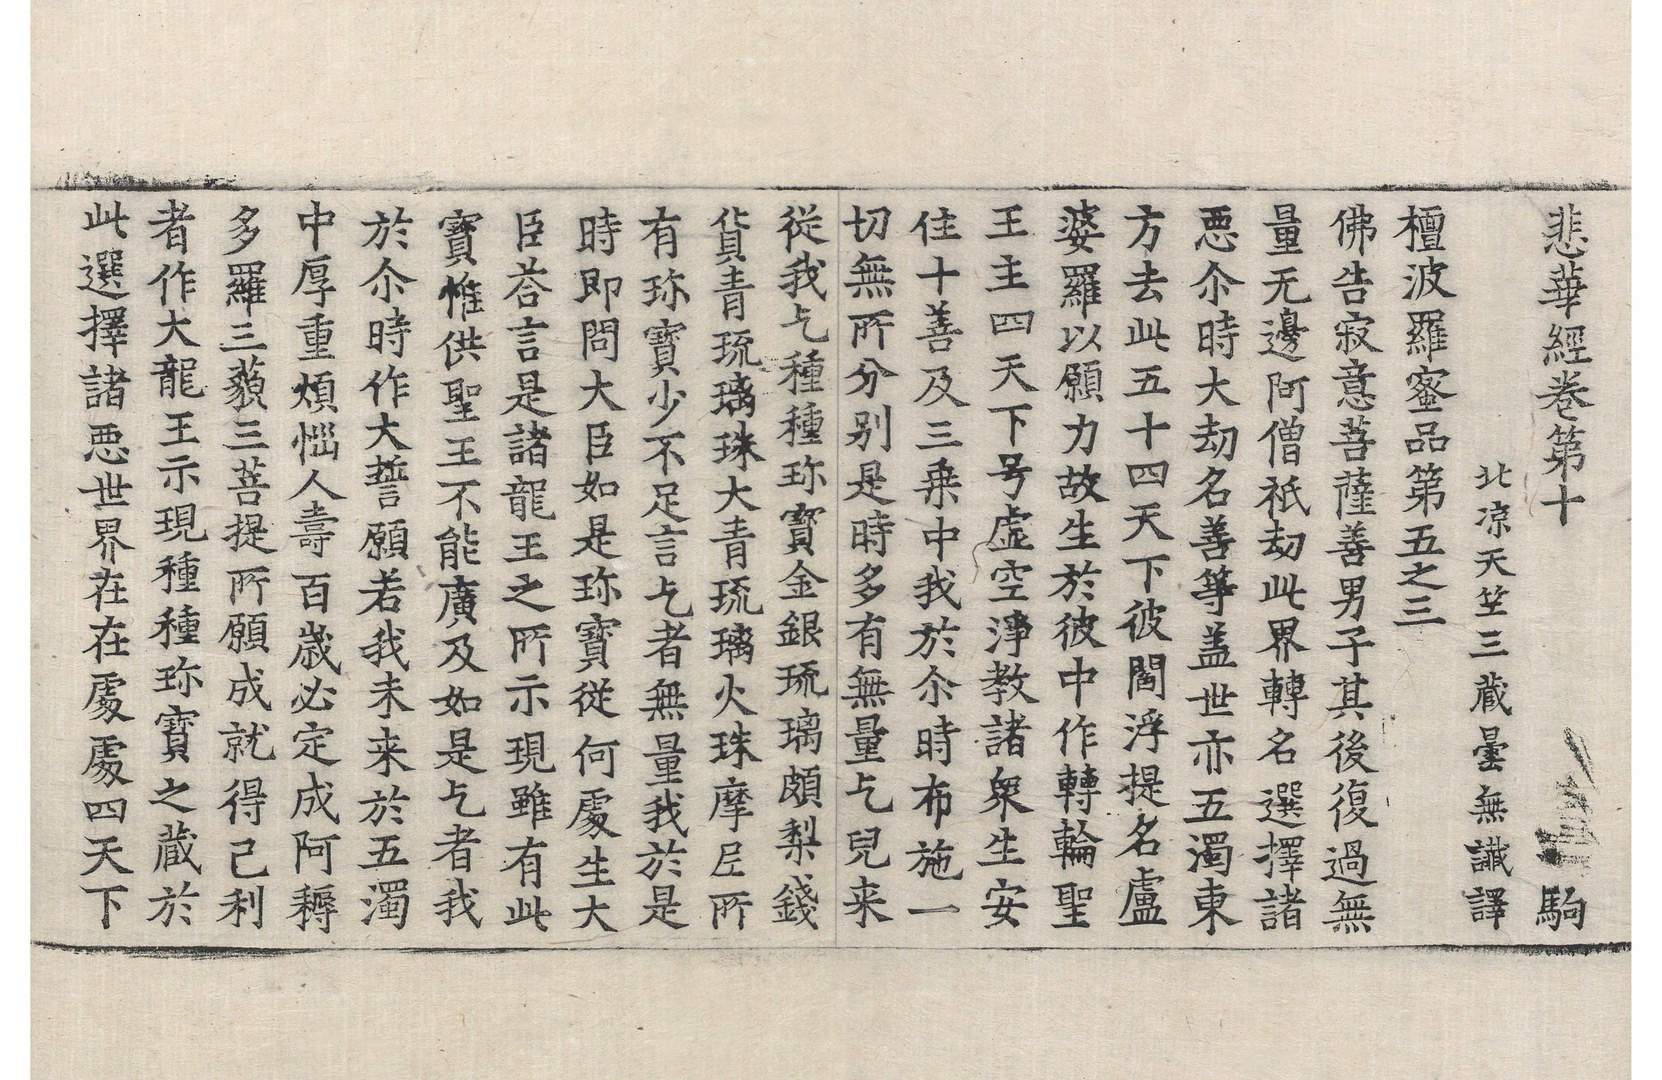 悲華經卷第十 駒
北涼天竺三藏曇無讖譯
檀波羅蜜品第五之三
佛告寂意菩薩善男子其後復過無
量无邊阿僧祇劫此界轉名選擇諸
悪尒時大劫名善等盖世亦五濁東
方去此五十四天下彼閻浮提名盧
婆羅以願力故生於彼中作轉輪聖
王主四天下号虛空淨教諸衆生安
住十善及三乗中我於尒時布施一
切無所分別是時多有無量乞兒来
從我乞種種珎寶金銀琉璃頗梨錢
貨青琉璃珠大青琉璃火珠摩尼所
有珎寶少不足言乞者無量我於是
時即問大臣如是珎寶從何處生大
臣荅言是諸龍王之所示現雖有此
寶惟供聖王不能廣及如是乞者我
於尒時作大誓願若我未来於五濁
中厚重煩惱人壽百歲必定成阿耨
多羅三藐三菩提所願成就得己利
者作大龍王示現種種珎寶之藏於
此選擇諸悪世界在在處處四天下